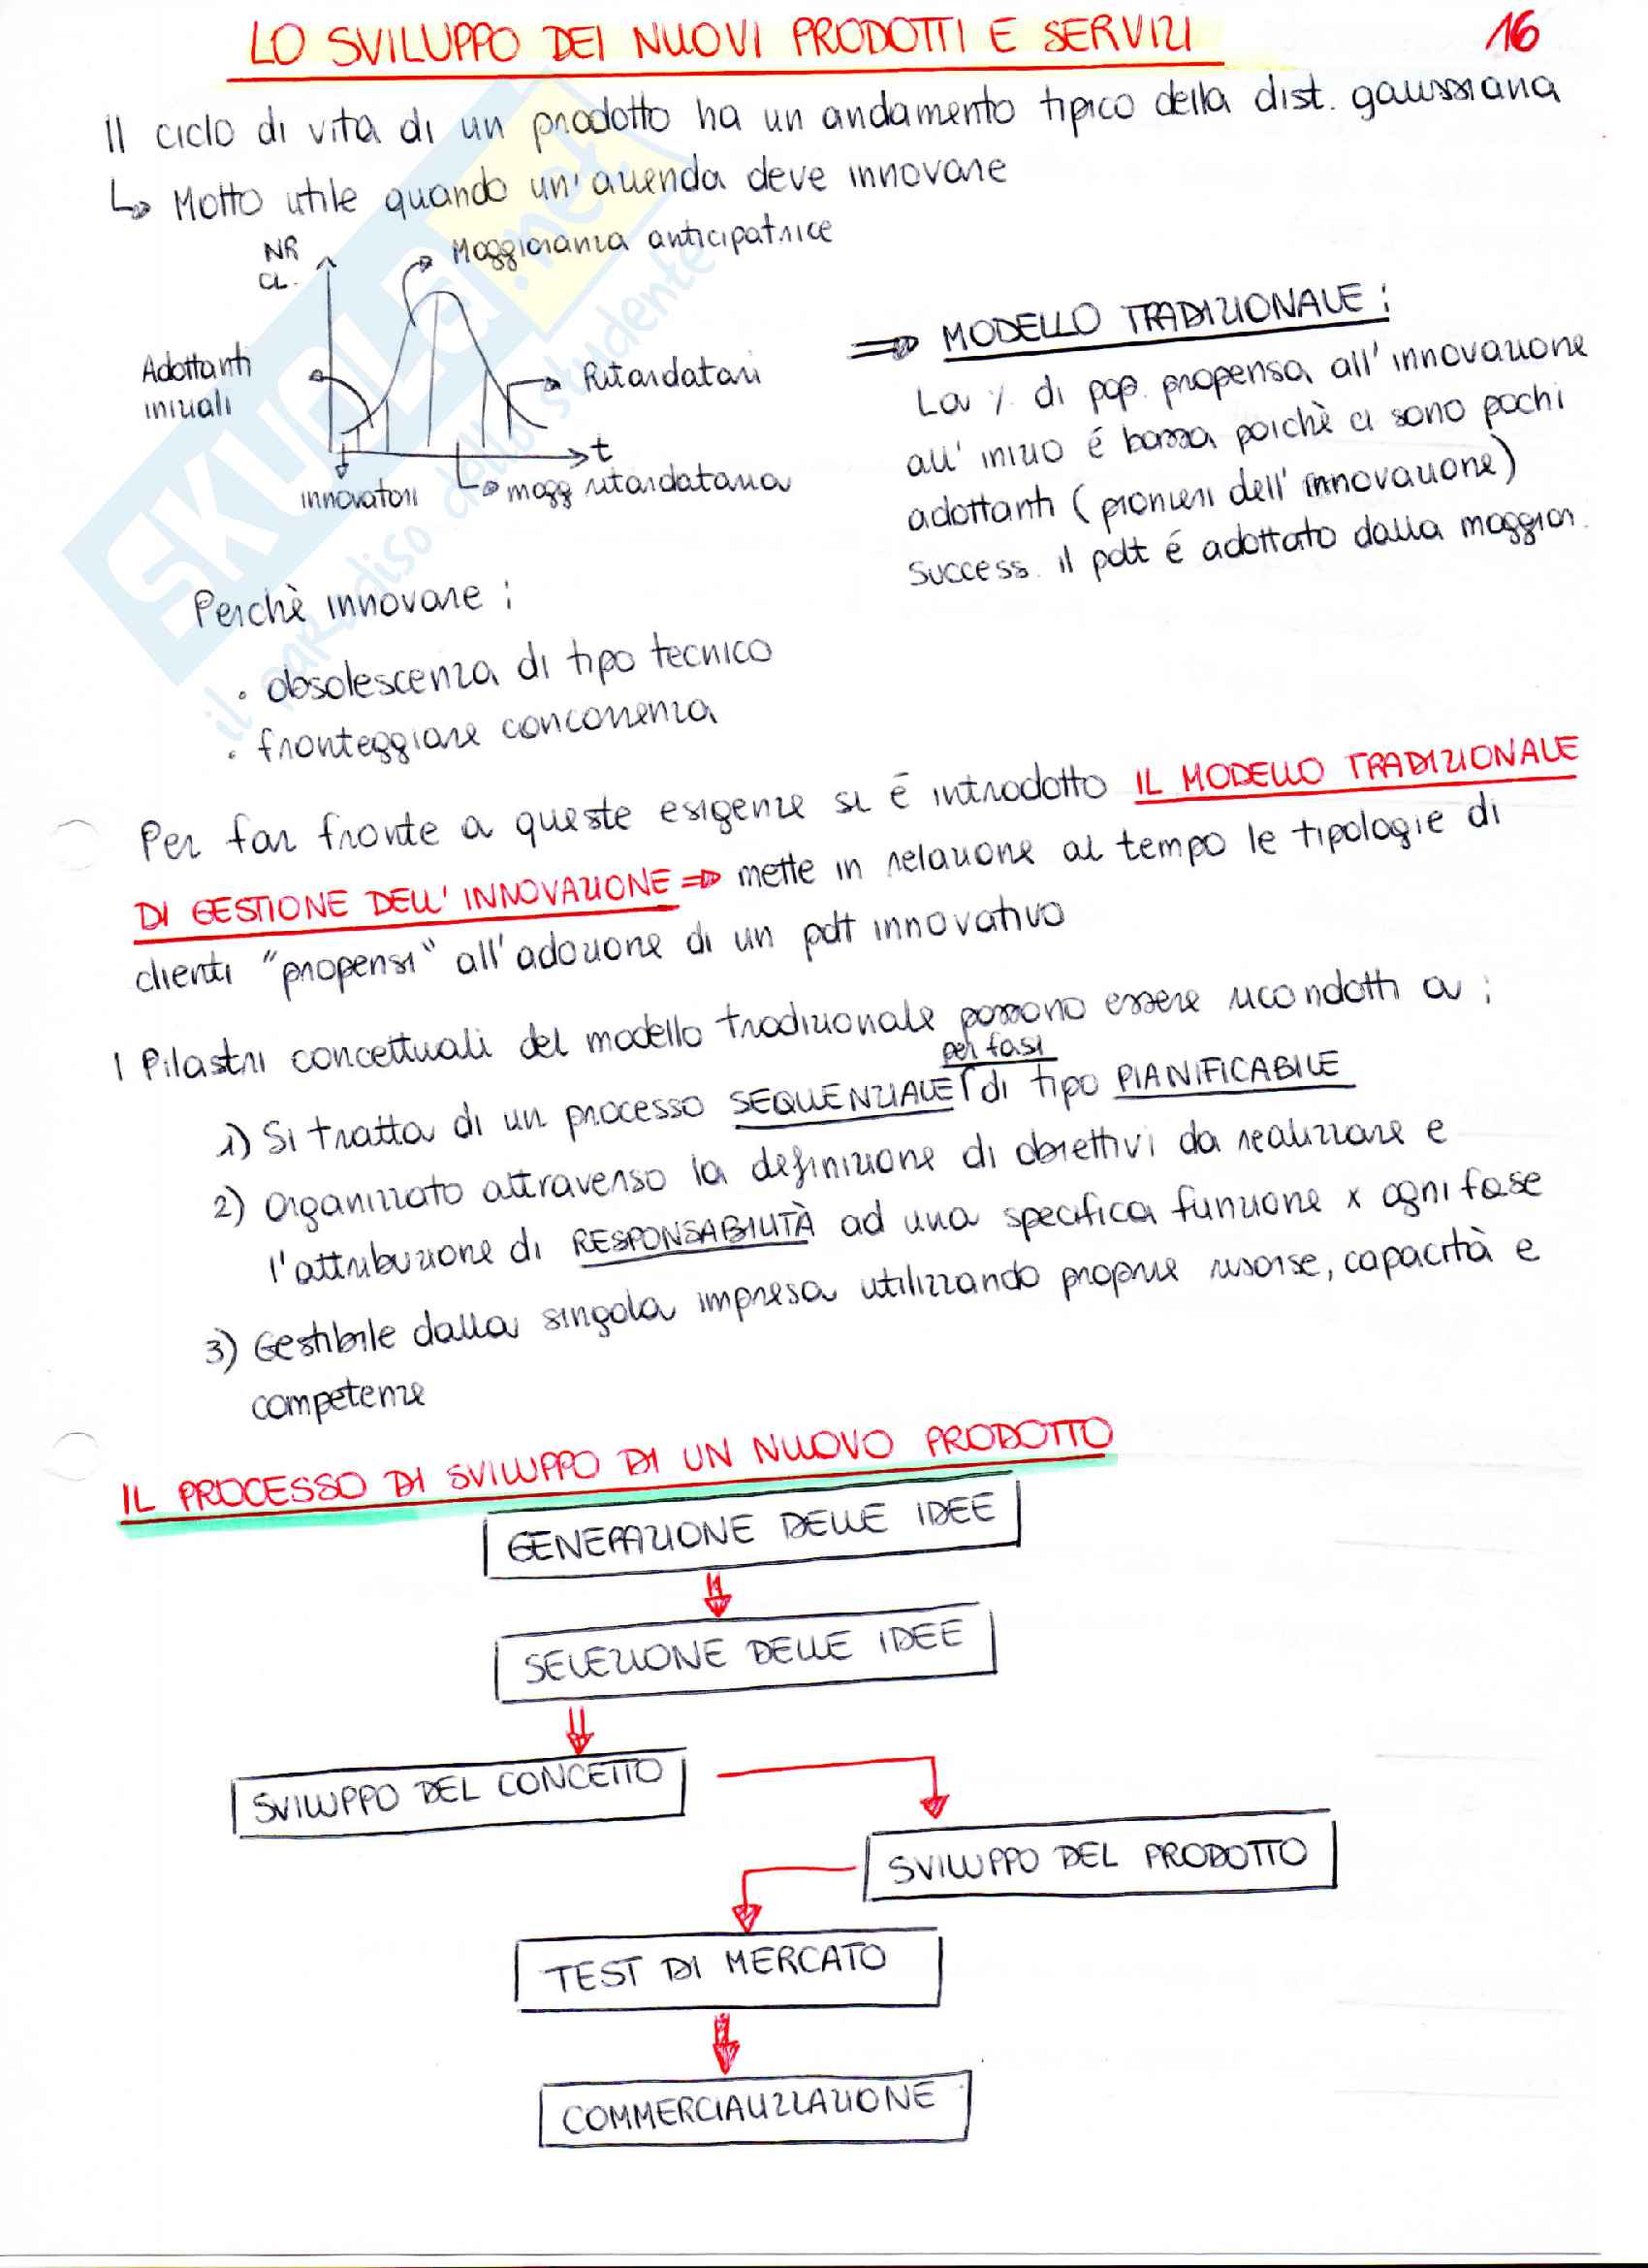 LO SVILUPPO DEI NUOVI PRODOTTI E SERVIZI 16
Il ciclo di vita di un prodotto ha un andamento tipico della dist. gaussiana
↳ Molto utile quando un'azienda deve innovare
NR
CL.
Maggioranza anticipatrice
Adottanti
iniziali
Ritardatari
t
innovatori
magg ritardataria
⇒ MODELLO TRADIZIONALE :
La % di pop. propensa all'innovazione
all'inizio é bassa poichè ci sono pochi
adottanti (pionieri dell'innovazione)
success. il pdt é adottato dalla maggior.
Perchè innovare :
• obsolescenza di tipo tecnico
• fronteggiare concorrenza
Per far fronte a queste esigenze si é introdotto IL MODELLO TRADIZIONALE
DI GESTIONE DELL'INNOVAZIONE ⇒ mette in relazione al tempo le tipologie di
clienti "propensi" all'adozione di un pdt innovativo
I Pilastri concettuali del modello tradizionale possono essere ricondotti a :
per fasi
1) Si tratta di un processo SEQUENZIALE di tipo PIANIFICABILE
2) Organizzato attraverso la definizione di obiettivi da realizzare e
l'attribuzione di RESPONSABILITÀ ad una specifica funzione x ogni fase
3) Gestibile dalla singola impresa utilizzando proprie risorse, capacità e
competenze
IL PROCESSO DI SVILUPPO DI UN NUOVO PRODOTTO
GENERAZIONE DELLE IDEE
SELEZIONE DELLE IDEE
SVILUPPO DEL CONCETTO
SVILUPPO DEL PRODOTTO
TEST DI MERCATO
COMMERCIALIZZAZIONE
SKUOLA.net
il paradiso dello studente